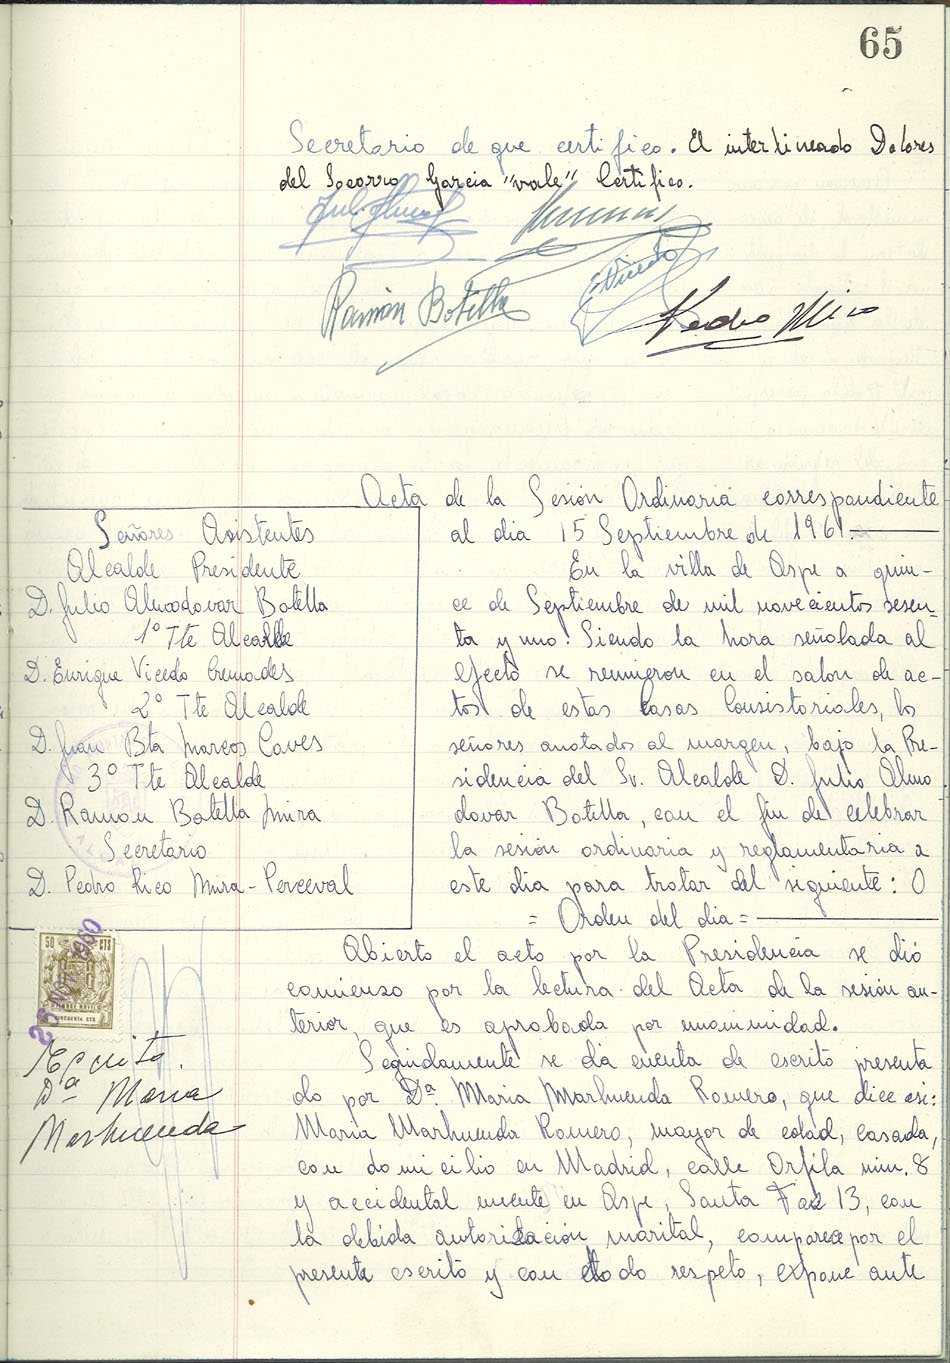 65
Secretario de que certifico. El interlineado Dolores
del Socorro Garcia "vale" Certifico.
Ramón Botella
Vicedo
Pedro Rico
Acta de la Sesión Ordinaria correspondiente
al dia 15 Septiembre de 1961.
Señores Asistentes
Alcalde Presidente
D. Julio Almodovar Botella
1º Tte Alcalde
D. Enrique Vicedo Cremades
2º Tte Alcalde
D. Juan Bta Marcos Caves
3º Tte Alcalde
D. Ramón Botella Mira
Secretario
D. Pedro Rico Mira-Perceval
En la villa de Aspe a quin-
ce de Septiembre de mil novecientos sesen-
ta y uno: Siendo la hora señalada al
efecto se reunieron en el salon de ac-
tos de estas Casas Consistoriales, los
señores anotados al margen, bajo la Pre-
sidencia del Sr. Alcalde D. Julio Almo
dovar Botella, con el fin de celebrar
la sesión ordinaria y reglamentaria a
este dia para tratar del siguiente: O
= Orden del dia =
50 CTS
25 NOV 1960
CINCUENTA CTS
Abierto el acto por la Presidencia se dió
comienzo por la lectura del Acta de la sesión an-
terior, que es aprobada por unanimidad.
Escrito
Dª Maria
Marhuenda
Seguidamente se da cuenta de escrito presenta
do por Dª. Maria Marhuenda Romero, que dice asi:
Maria Marhuenda Romero, mayor de edad, casada,
con domicilio en Madrid, calle Orfila num. 8
y accidental mente en Aspe, Santa Faz 13, con
la debida autorización marital, comparece por el
presente escrito y con todo respeto, expone ante